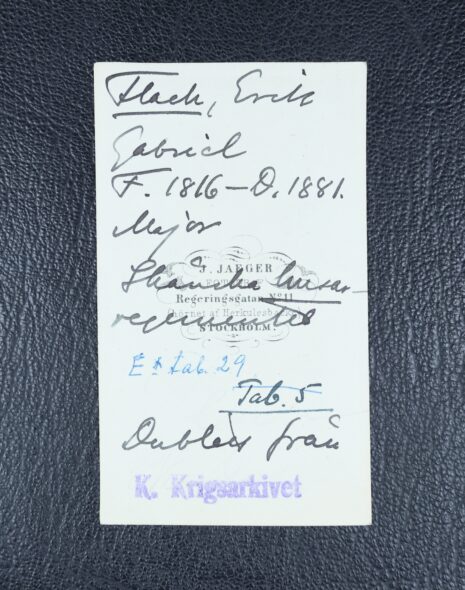 Flach, Erik
Gabriel
F. 1816 – D. 1881.
Major
Skånska husar-
regementet
J. JAEGER
Regeringsgatan No 11
hörnet af Herkulesbacken
STOCKHOLM.
tab. 29
Tab. 5
Dublett från
K. Krigsarkivet